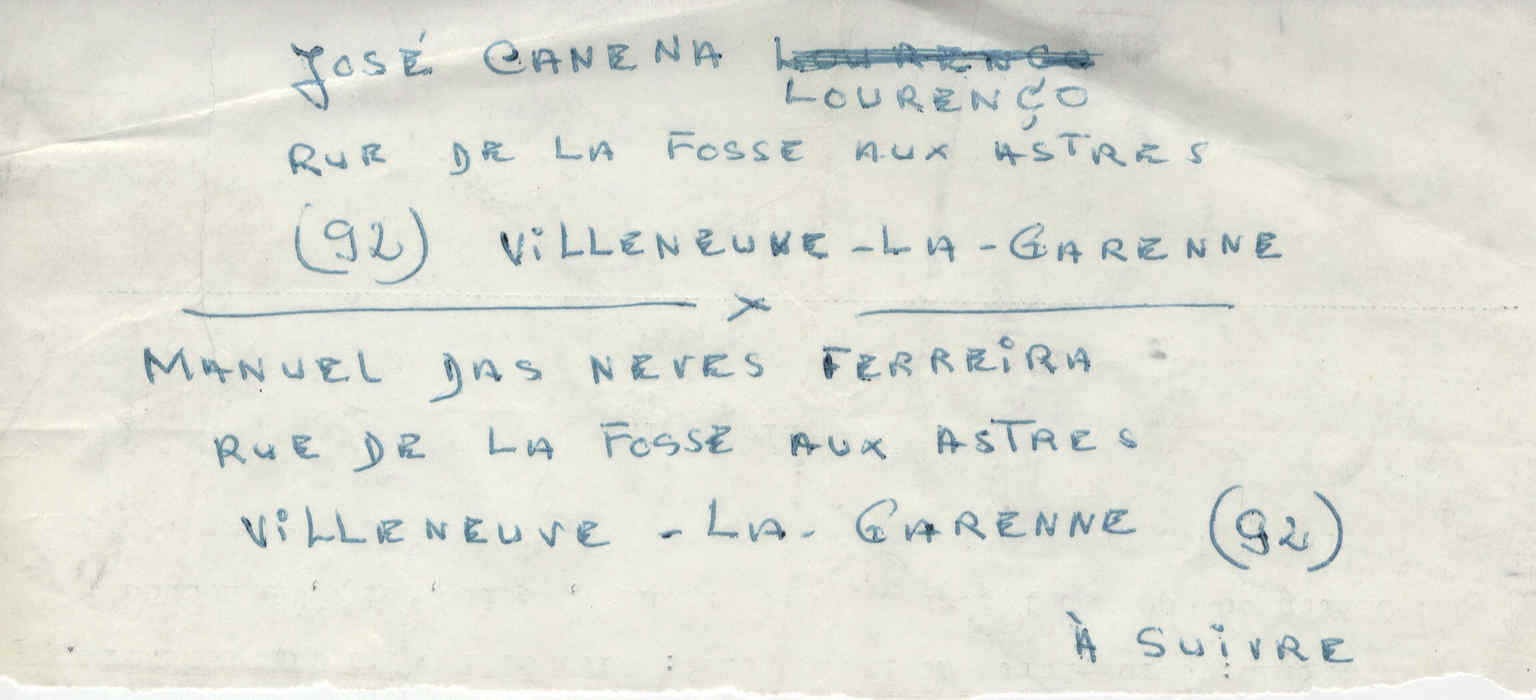 JOSÉ CANENA LOURENÇO
LOURENÇO
RUE DE LA FOSSE AUX ASTRES
(92) VILLENEUVE-LA-GARENNE
x
MANUEL DAS NEVES FERREIRA
RUE DE LA FOSSE AUX ASTRES
VILLENEUVE-LA-GARENNE (92)
À SUIVRE